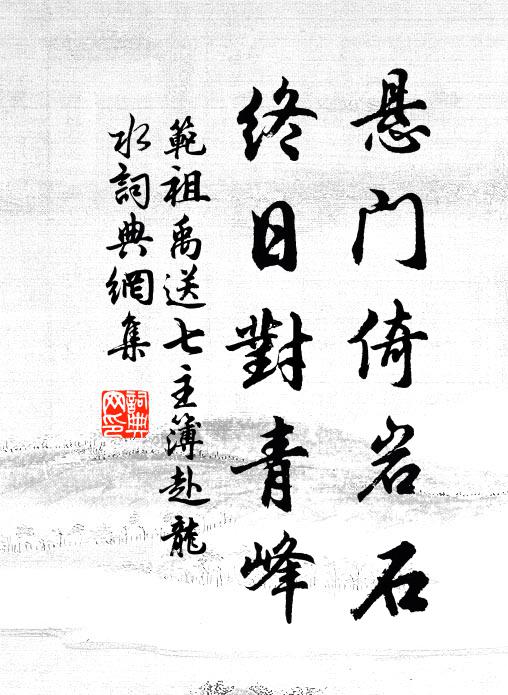 悬门倚岩石
终日對青峰
範祖禹送七主簿赴龍
水詞典網集
詞典網印